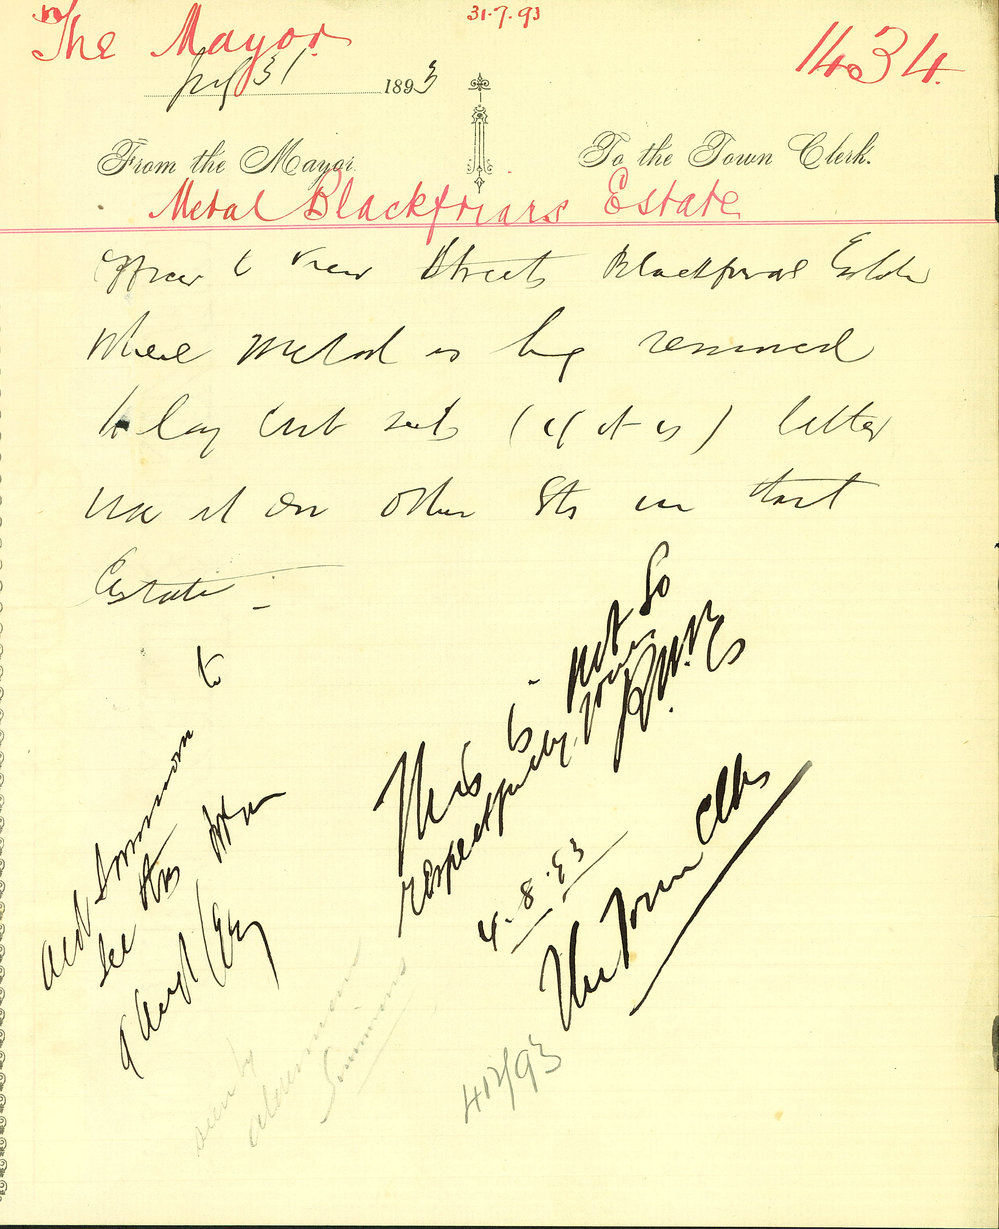 The Mayor
31.7.93
1434
July 31 1893
From the Mayor
To the Town Clerk.
Metal Blackfriars Estate
Officer to view Streets Blackfriars Estate
Where Metal is being removed
to lay out (if it is) better
use it on other Sts in that
Estate -
This is not so
respectfully yours
4.8.93
The Town Clk
Ald Simmons to
see this
9 Augt
seen by
alderman
Simmons
412/93